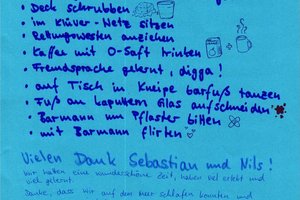 • Deck schrubben
• im Klüver-Netz sitzen
• Rettungswesten anziehen
• Kaffee mit O-Saft trinken
• Fremdsprache gelernt, digga!
• auf Tisch in Kneipe barfuß tanzen
• Fuß an kaputtem Glas aufschneiden
• Barmann um Pflaster bitten
• mit Barmann flirten
Vielen Dank Sebastian und Nils!
Wir hatten eine wunderschöne Zeit, haben viel erlebt und
viel gelernt.
Danke, dass wir auf dem Meer schlafen konnten und